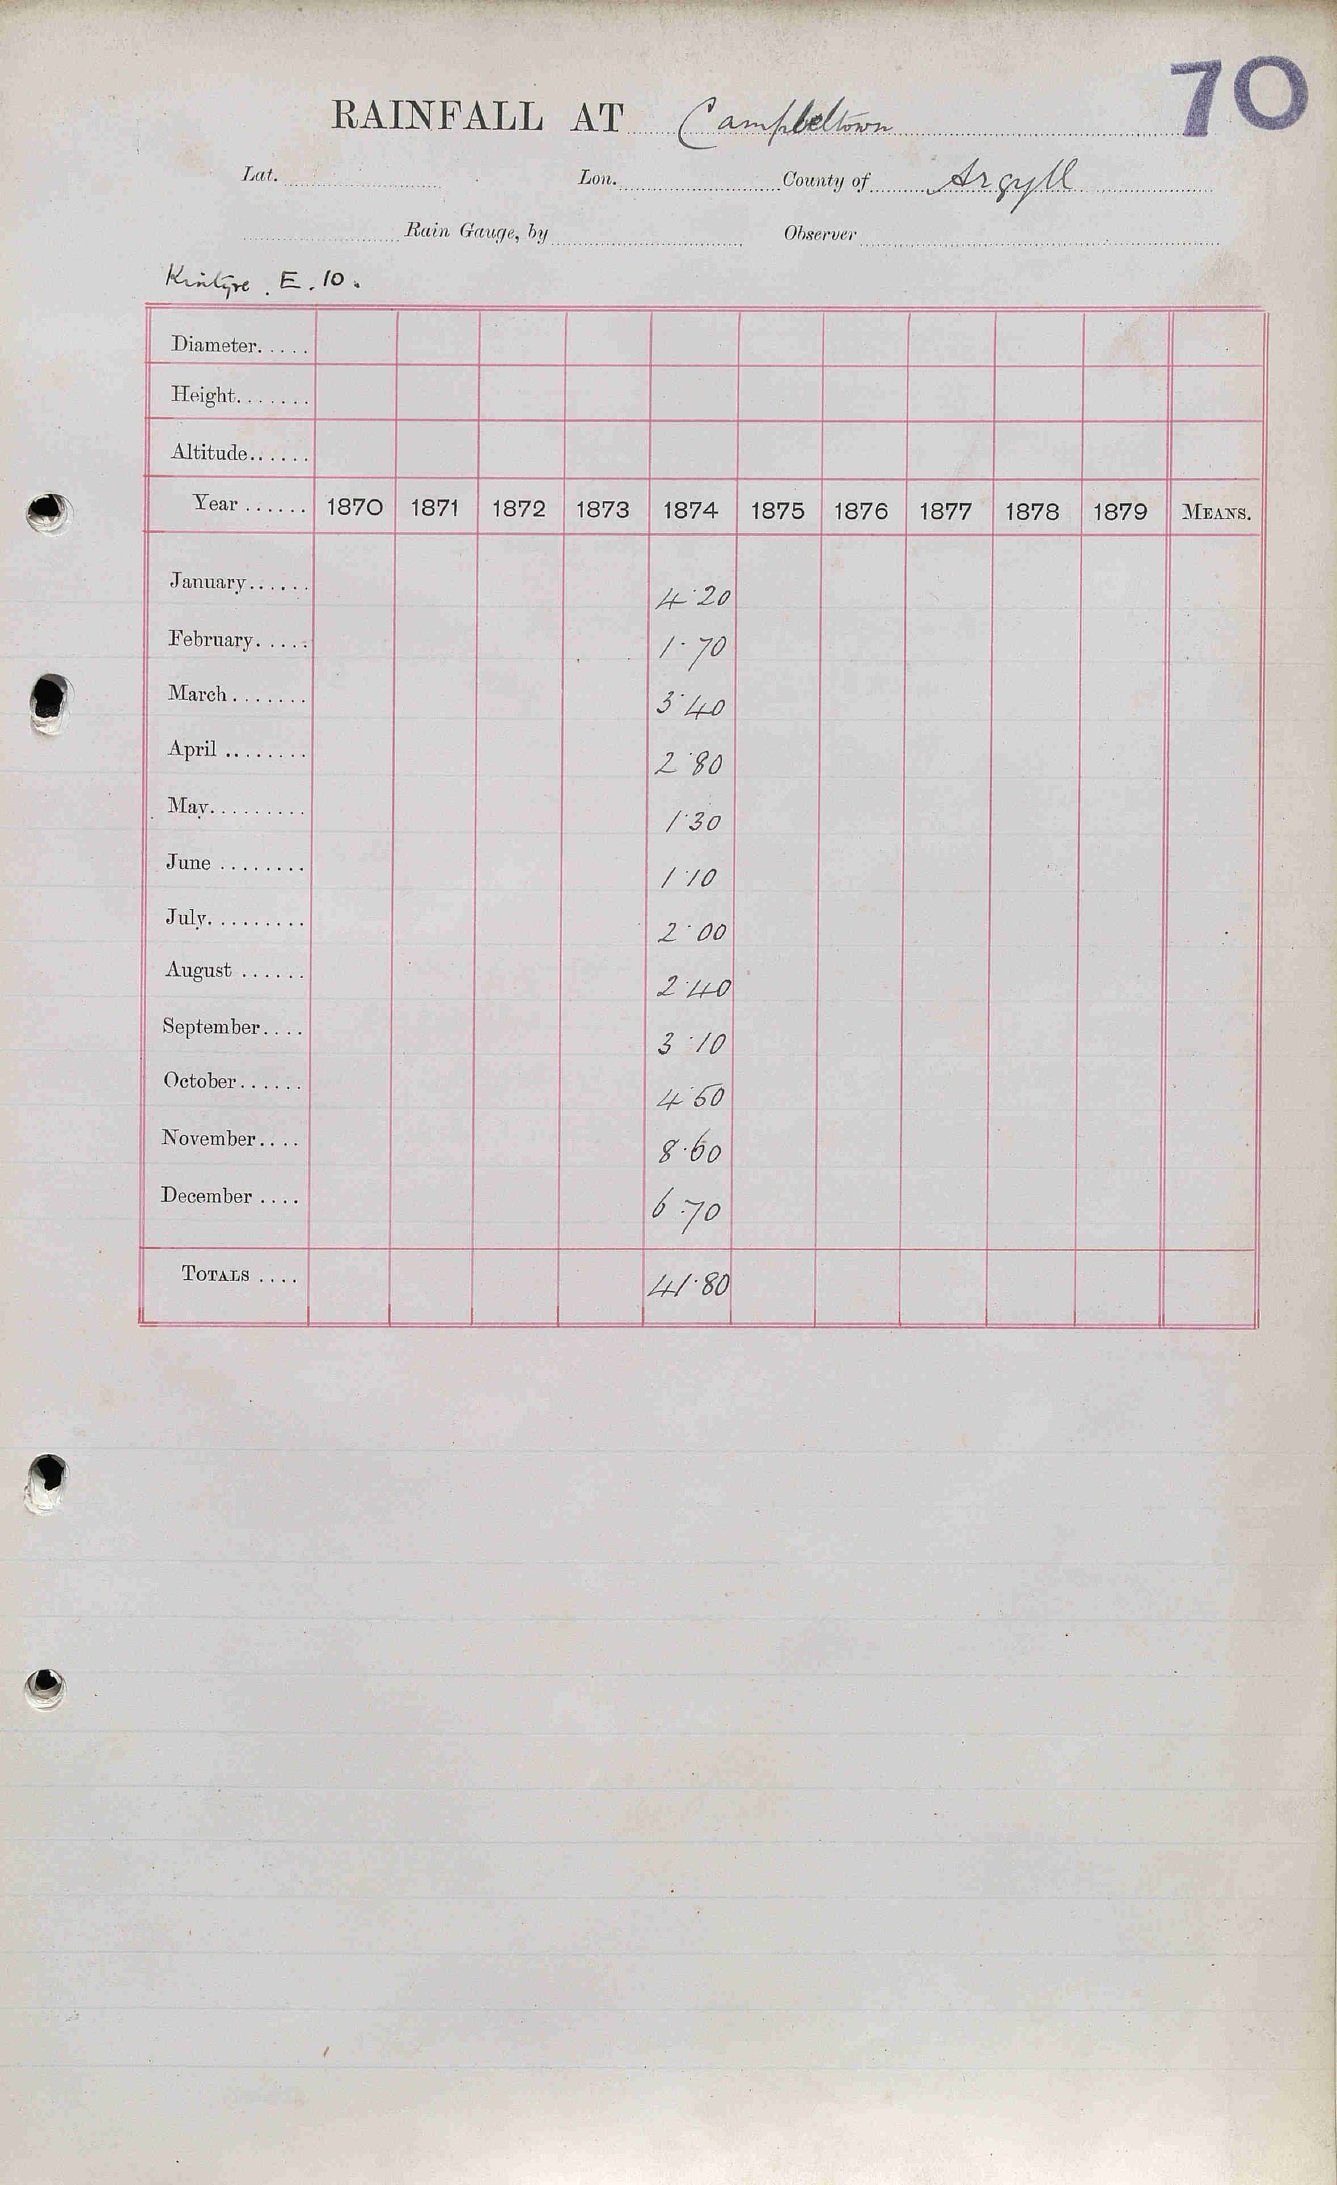 70
RAINFALL AT Campbeltown
Lat. Lon. County of Argyll
Rain Gauge, by Observer
Kintyre. E. 10.
Diameter.....
Height.......
Altitude......
Year ...... 1870 1871 1872 1873 1874 1875 1876 1877 1878 1879 MEANS.
January...... 4·20
February..... 1·70
March....... 3·40
April ........ 2·80
May......... 1·30
June ........ 1·10
July......... 2·00
August ...... 2·40
September.... 3·10
October...... 4·50
November.... 8·60
December .... 6·70
TOTALS .... 41·80